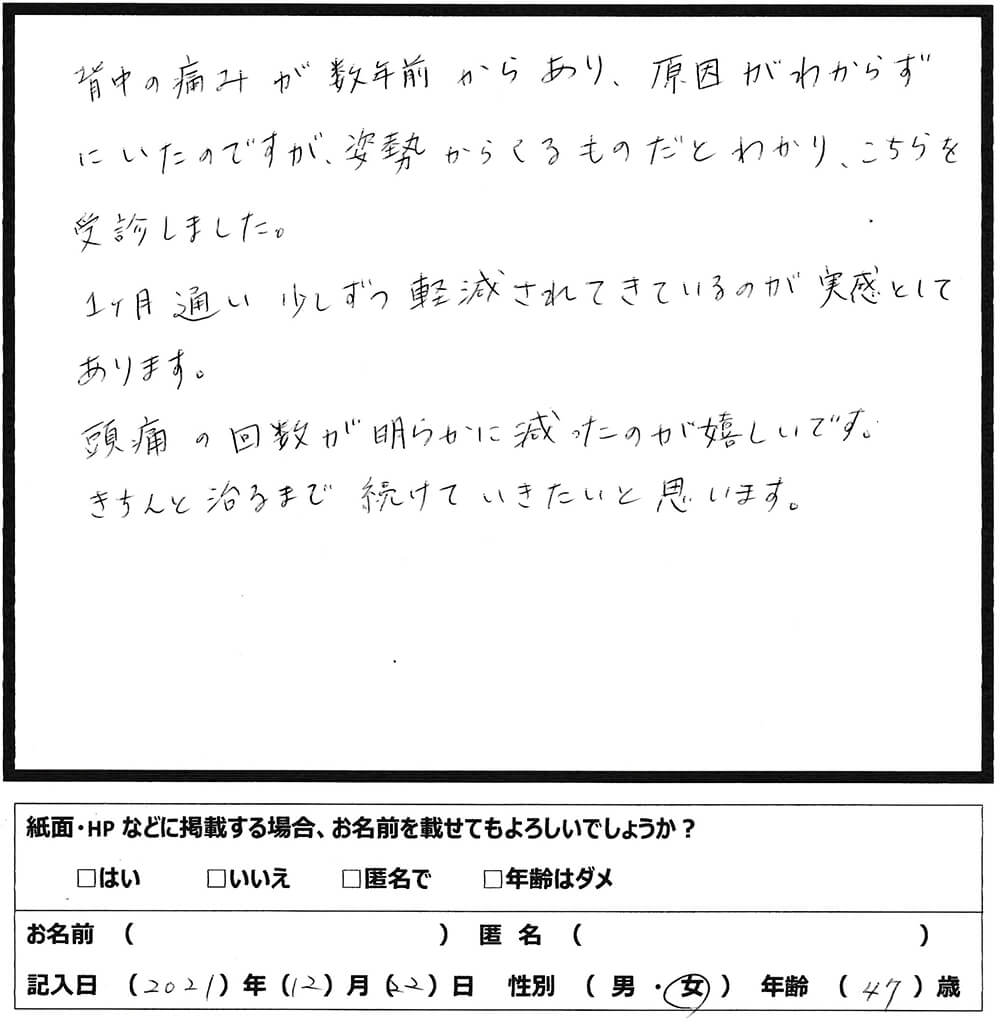 背中の痛みが数年前からあり、原因がわからず
にいたのですが、姿勢からくるものだとわかり、こちらを
受診しました。
1ヶ月通い少しずつ軽減されてきているのが実感として
あります。
頭痛の回数が明らかに減ったのが嬉しいです。
きちんと治るまで続けていきたいと思います。
紙面・HPなどに掲載する場合、お名前を載せてもよろしいでしょうか？
□はい □いいえ □匿名で □年齢はダメ
お名前 （ ） 匿 名 （ ）
記入日 （2021）年（12）月（22）日 性別 （ 男 ・ 女 ） 年齢 （ 47 ）歳